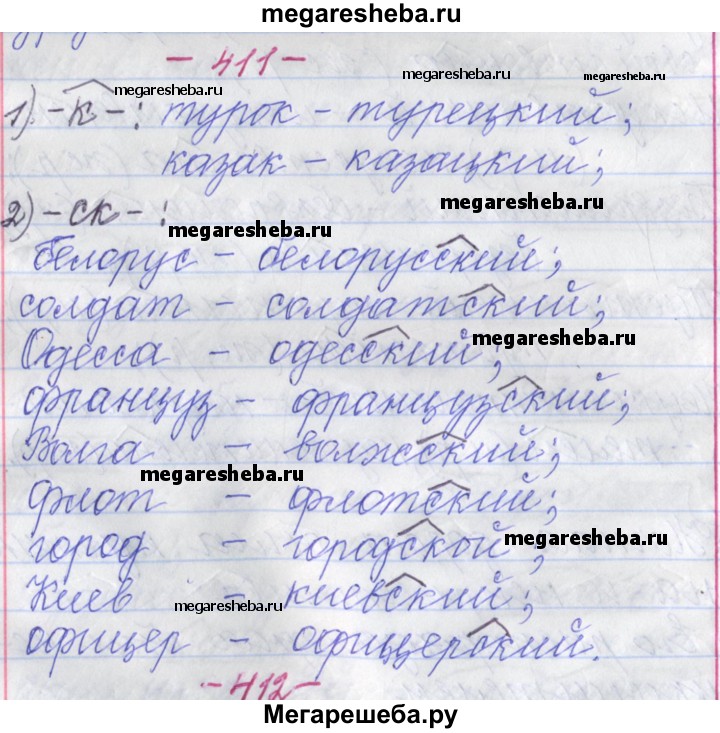 megaresheba.ru
- 411 -
megaresheba.ru megaresheba.ru megaresheba.ru
1) -к- : турок - турецкий;
казак - казацкий;
megaresheba.ru
2) -ск- :
megaresheba.ru
белорус - белорусский;
солдат - солдатский;
megaresheba.ru
Одесса - одесский;
француз - французский;
Волга - волжский;
megaresheba.ru
флот - флотский;
город - городской;
megaresheba.ru
Киев - киевский;
megaresheba.ru
офицер - офицерский.
- 412 -
Мегарешеба.ру